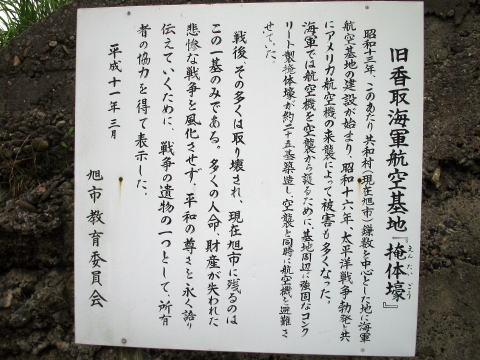 旧香取海軍航空基地『掩体壕』
えんたいごう
昭和十三年、このあたり共和村(現在旭市)鎌数を中心とした地に海軍
航空基地の建設が始まり、昭和十六年、太平洋戦争勃発と共
にアメリカ航空機の来襲によって被害も多くなった。
海軍では航空機を空襲から護るために、基地周辺に強固なコンク
リート製掩体壕が約二十五基築造し、空襲と同時に航空機を避難さ
せていた。
戦後、その多くは取り壊され、現在旭市に残るのは
この一基のみである。多くの人命、財産が失われた
悲惨な戦争を風化させず、平和の尊さを永く語り
伝えていくために、戦争の遺物の一つとして、所有
者の協力を得て表示した。
平成十一年三月
旭市教育委員会